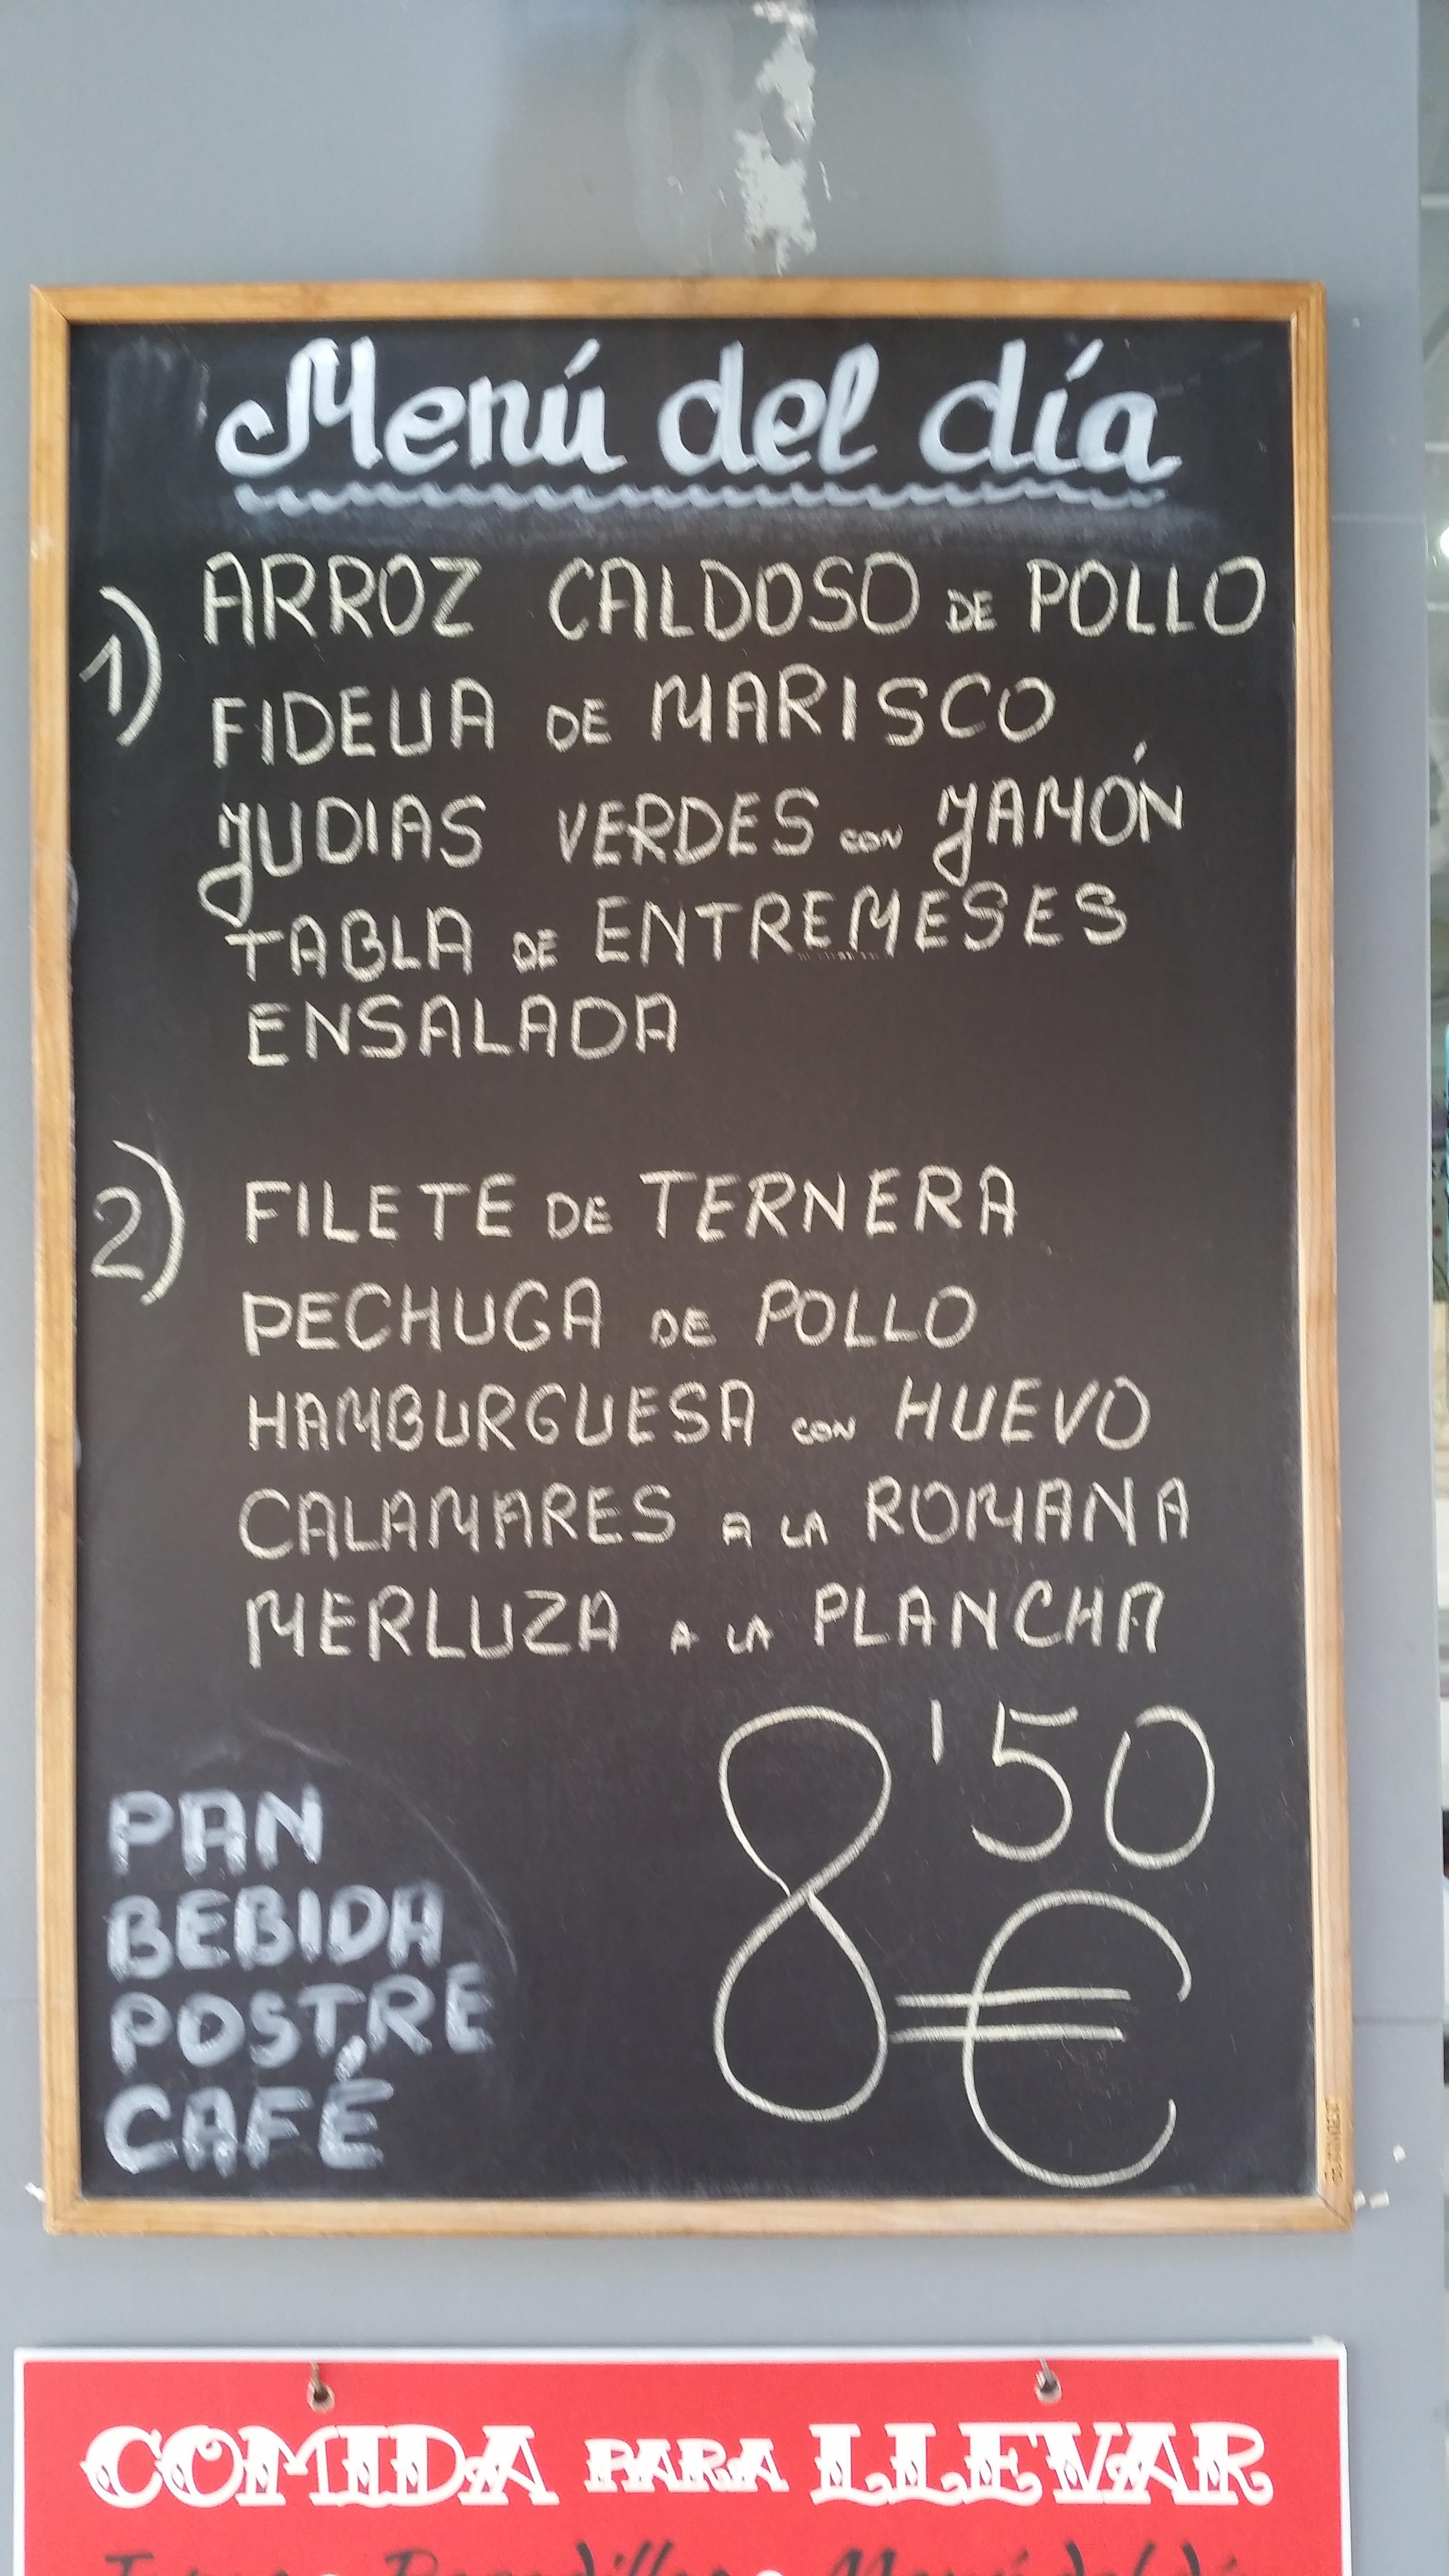 Menú del día
1) ARROZ CALDOSO DE POLLO
FIDEUA DE MARISCO
JUDIAS VERDES CON JAMÓN
TABLA DE ENTREMESES
ENSALADA
2) FILETE DE TERNERA
PECHUGA DE POLLO
HAMBURGUESA CON HUEVO
CALAMARES A LA ROMANA
MERLUZA A LA PLANCHA
8'50 €
PAN
BEBIDA
POSTRE
CAFÉ
COMIDA PARA LLEVAR